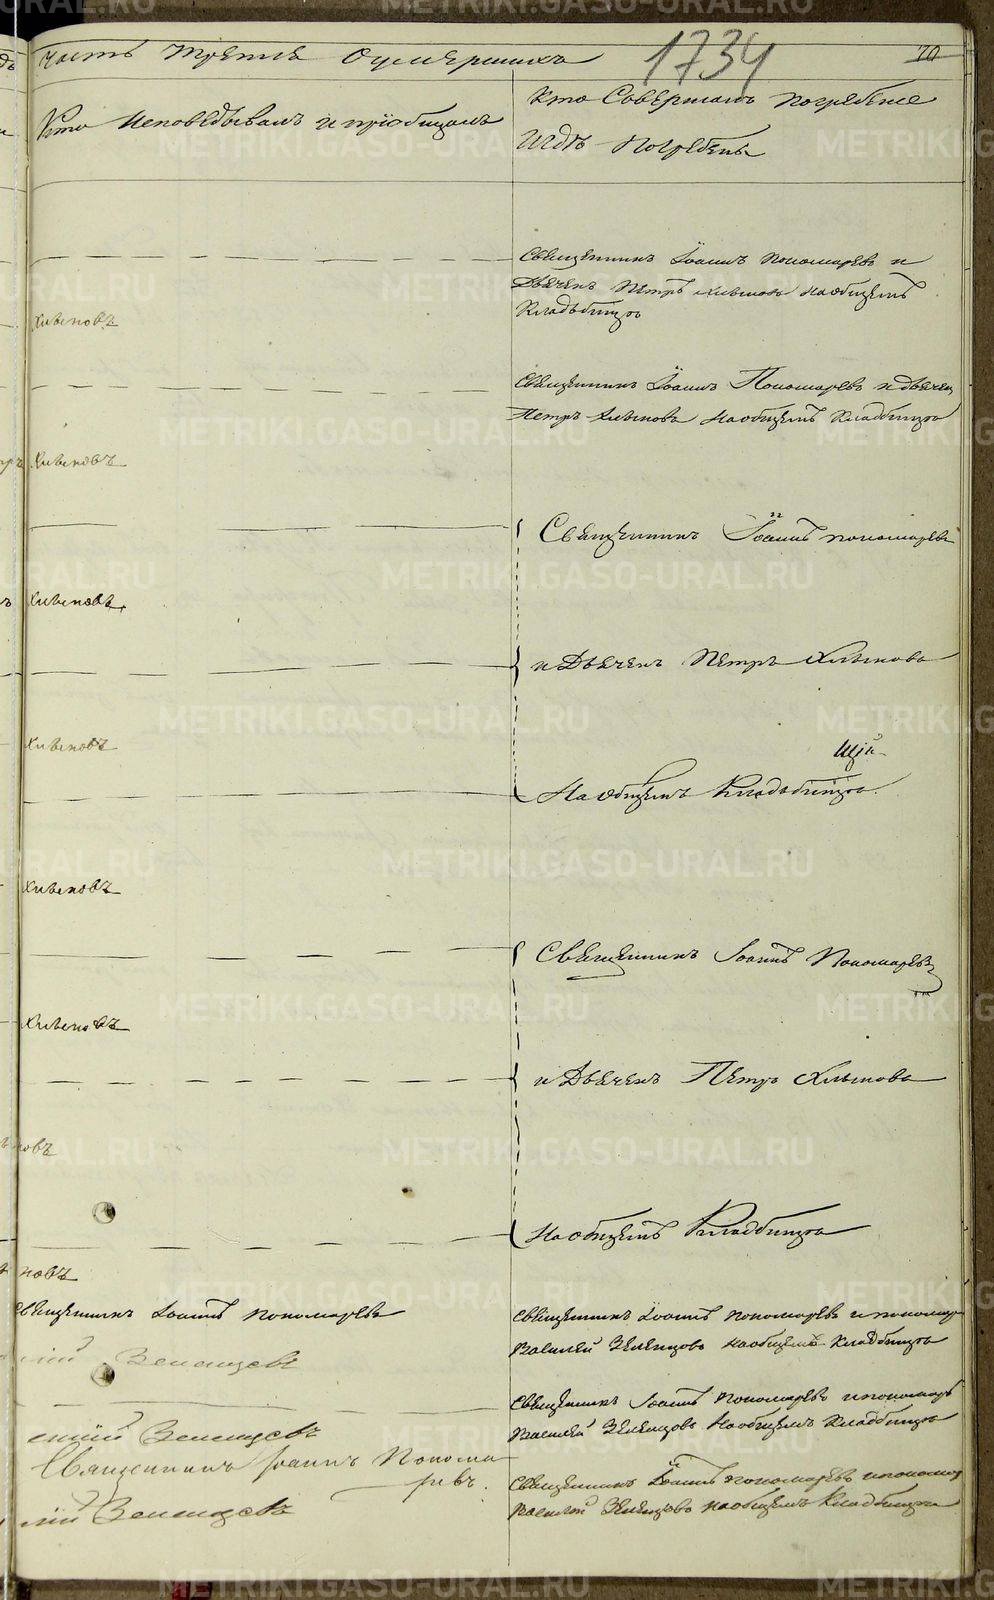 часть третія О умершихъ
1734
70
Кто исповѣдывалъ и пріобщалъ
Кто Совершалъ погребеніе
И гдѣ погребены
Священникъ Іоаннъ Пономаревъ и
Дьячекъ Петръ Хлыновъ На общемъ
Кладьбищѣ
Хлыновъ
Священникъ Іоаннъ Пономаревъ и дьячекъ
Петръ Хлыновъ На общемъ Кладбищѣ
Хлыновъ
Священникъ Іоаннъ пономаревъ
Хлыновъ
и Дьячекъ Петръ Хлыновъ
Хлыновъ
На общемъ Кладьбищѣ
Хлыновъ
Священникъ Іоаннъ Пономаревъ
Хлыновъ
и Дьячекъ Петръ Хлыновъ
новъ
На общемъ Кладбищѣ
новъ
Священникъ Іоаннъ пономаревъ
Священникъ Іоаннъ пономаревъ и пономарь
Василій Зеленцовъ на общемъ Кладбищѣ
лій Зеленцовъ
Священникъ Іоаннъ пономаревъ и пономарь
Василій Зеленцовъ На общемъ Кладбищѣ
силій Зеленцовъ
Священникъ Іоаннъ Понома
ревъ.
Священникъ Іоаннъ пономаревъ и пономарь
Василій Зеленцовъ на общемъ Кладбищѣ
лій Зеленцовъ
METRIKI.GASO-URAL.RU